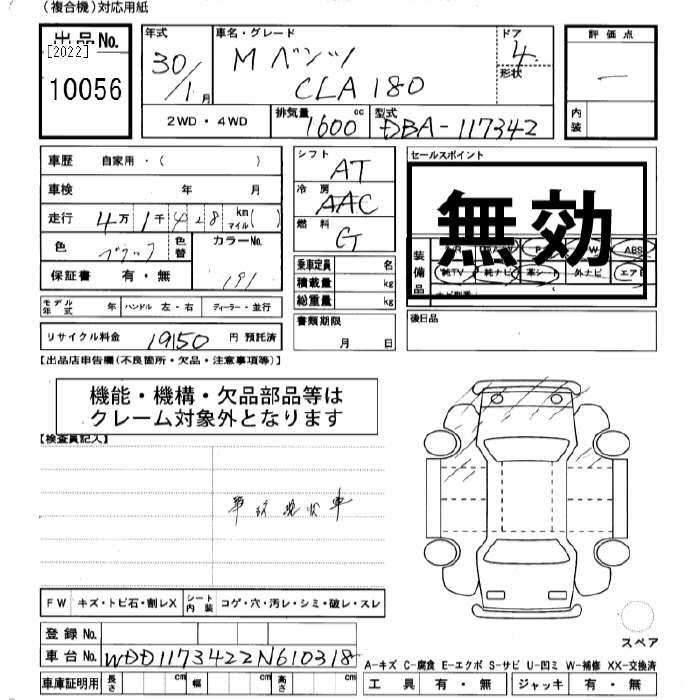 (複合機)対応用紙
出品No. [2022] 10056
年式 30/1月
車名・グレード Mベンツ CLA180
ドア 4 形状
評価点 —
内装
2WD・4WD 排気量 1600 cc 型式 DBA-117342
車歴 自家用・( )
車検 年 月
走行 4万1千428 km マイル( )
色 ブラック 色替 カラーNo. 191
保証書 有・無
モデル年式 年 ハンドル 左・右 ディーラー・並行
リサイクル料金 19150 円 預託済
シフト AT
冷房 AAC
燃料 G
乗車定員 名
積載量 kg
総重量 kg
書類期限 月 日
セールスポイント
無効
装備品 P W ABS
純TV 純ナビ 革シート 外ナビ エアB
後日品
【出品店申告欄(不良箇所・欠品・注意事項等)】
機能・機構・欠品部品等は
クレーム対象外となります
【検査員記入】
事故現状車
FW キズ・トビ石・割レX シート内装 コゲ・穴・汚レ・シミ・破レ・スレ
登録No.
車台No. WDD1173422N610318
車庫証明用 長さ cm 幅 cm 高さ cm
スペア
A-キズ C-腐食 E-エクボ S-サビ U-凹ミ W-補修 XX-交換済
工具 有・無 ジャッキ 有・無